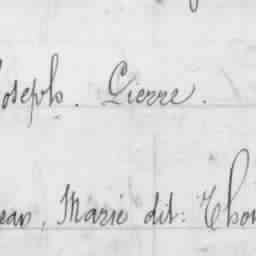 Joseph. Pierre.
Jean, Marie dit: Tho